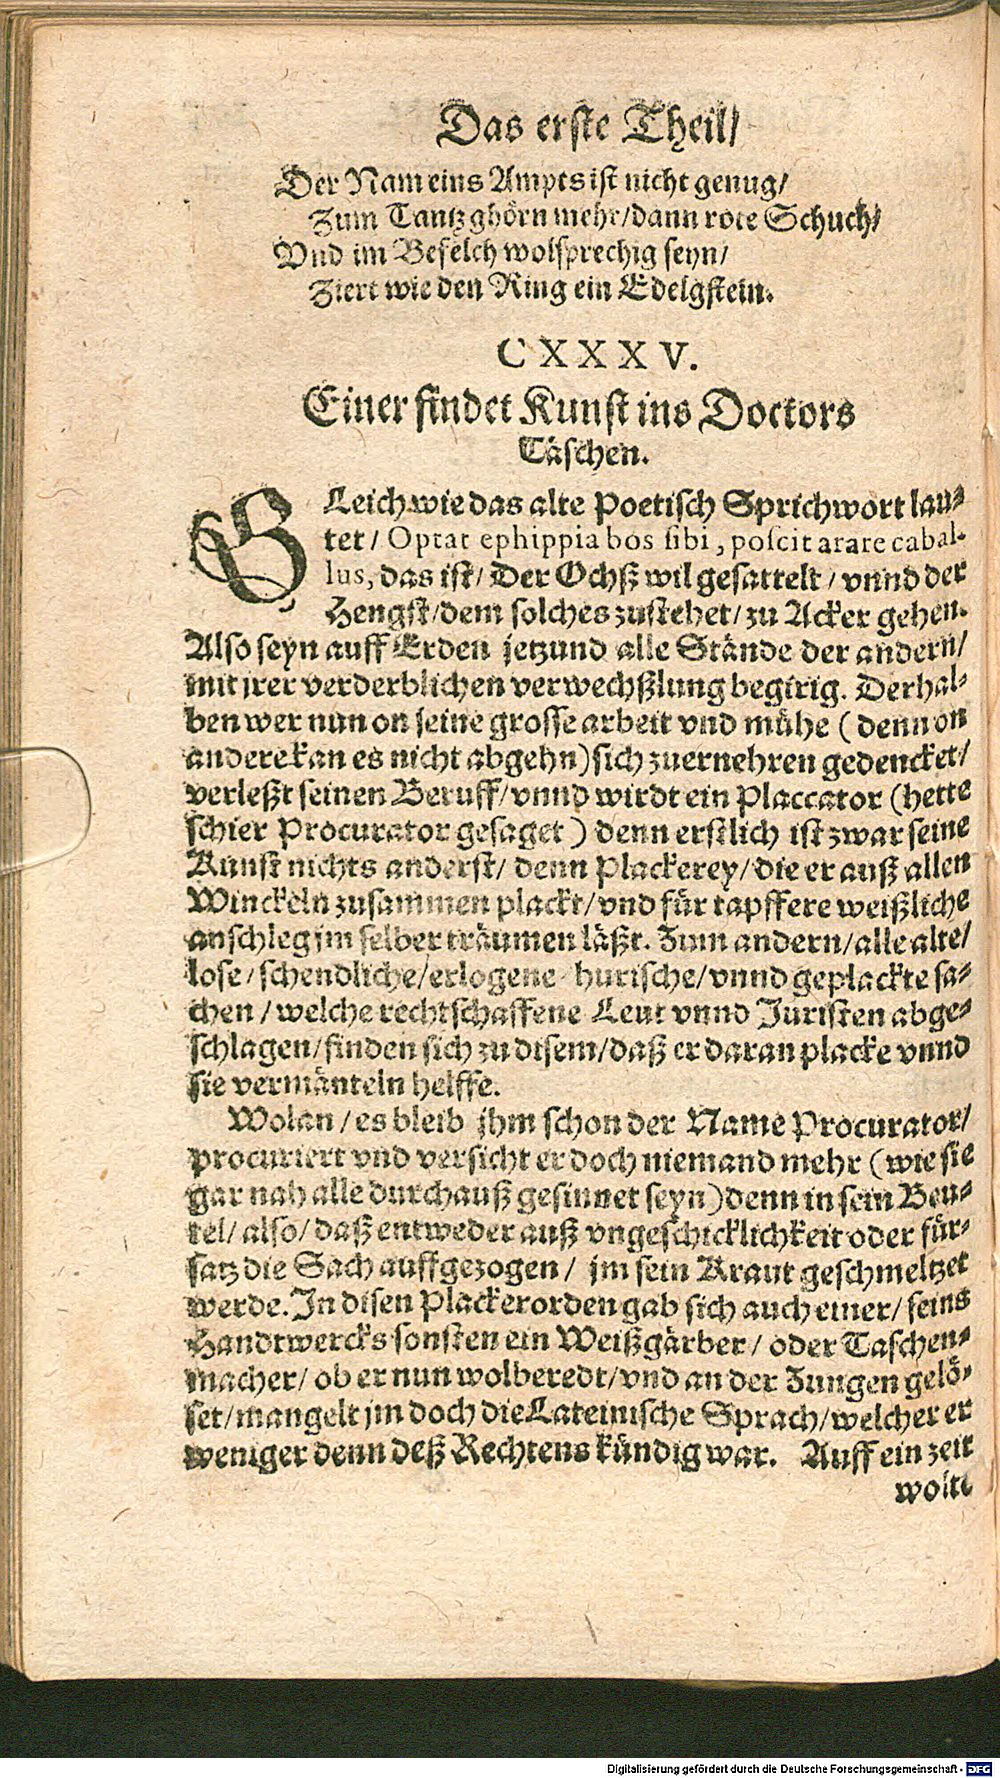 Das erste Theil/
Der Nam eins Ampts ist nicht genug/
Zum Tantz ghörn mehr/dann rote Schuch/
Vnd im Befelch wolsprechig seyn/
Ziert wie den Ring ein Edelgstein.
CXXXV.
Einer findet Kunst ins Doctors
Täschen.
GLeich wie das alte Poetisch Sprichwort lau-
tet/ Optat ephippia bos sibi, poscit arare cabal-
lus, das ist/ Der Ochß wil gesattelt/ vnnd der
Hengst/dem solches zustehet/ zu Acker gehen.
Also seyn auff Erden jetzund alle Stände der andern/
mit jrer verderblichen verwechßlung begirig. Derhal-
ben wer nun on seine grosse arbeit vnd mühe (denn on
andere kan es nicht abgehn) sich zuernehren gedencket/
verleßt seinen Beruff/vnnd wirdt ein Placcator (hette
schier Procurator gesaget) denn erstlich ist zwar seine
Kunst nichts anderst/ denn Plackerey/die er auß allen
Winckeln zusammen plackt/vnd für tapffere weißliche
anschleg jm selber träumen läßt. Zum andern/alle alte/
lose/schendliche/erlogene/hurische/vnnd geplackte sa-
chen/welche rechtschaffene Leut vnnd Juristen abge-
schlagen/finden sich zu disem/daß er daran placke vnnd
sie vermänteln helffe.
Wolan/es bleib jhm schon der Name Procurator/
procuriert vnd versicht er doch niemand mehr (wie sie
gar nah alle durchauß gesinnet seyn) denn in sein Beu-
tel/ also/ daß entweder auß vngeschicklichkeit oder für-
satz die Sach auffgezogen/ jm sein Kraut geschmeltzet
werde. In disen Plackerorden gab sich auch einer/ seins
Handtwercks sonsten ein Weißgärber/ oder Taschen-
macher/ ob er nun wolberedt/vnd an der Zungen gelö-
set/mangelt jm doch die Lateinische Sprach/welcher er
weniger denn deß Rechtens kündig war. Auff ein zeit
wolt
Digitalisierung gefördert durch die Deutsche Forschungsgemeinschaft - DFG